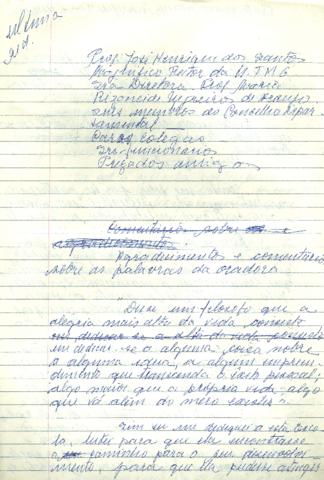 última
red.
Prof. José Henrique dos Santos
Magnífico Reitor da UFMG
Sra Diretora - Prof. Maria
senhores membros do Conselho Depar-
tamental
Caros colegas
Srs funcionários
Prezados amigos
Comentários sobre
agradecimentos e comentários
sobre as palavras da oradora
"Disse um filósofo que a
alegria mais alta da vida consiste
em dedicar-se a alguma coisa nobre
o alguma, a algum empreen-
dimento que transcenda o fato pessoal;
algo maior que a própria vida, algo
que vá além do mero
Sim eu me dediquei a esta Esco-
la, lutei para que ela encontrasse
o caminho para o seu desenvolvi-
mento, para que ela pudesse atingir